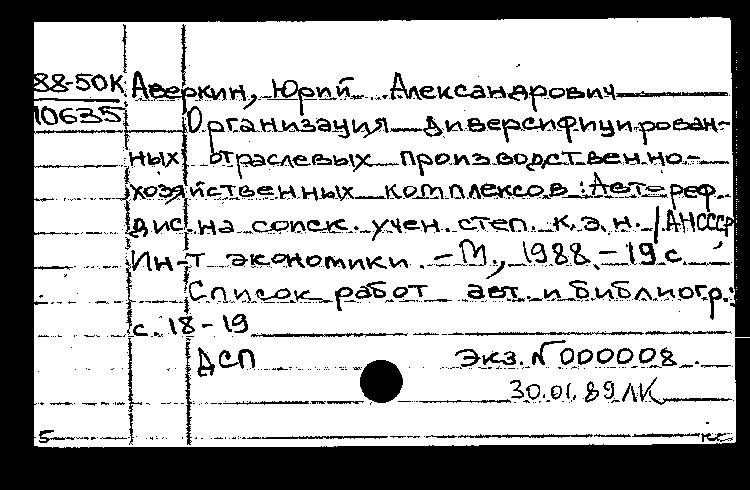 88-50К Аверкин, Юрий Александрович
10635 Организация диверсифицирован-
ных отраслевых производственно-
хозяйственных комплексов: Автореф.
дис. на соиск. учен. степ. к.э.н. / АН СССР,
Ин-т экономики. - М., 1988. - 19 с.
Список работ авт. и библиогр.:
с. 18-19
ДСП Экз. N 000008.
30.01.89 ЛК
5